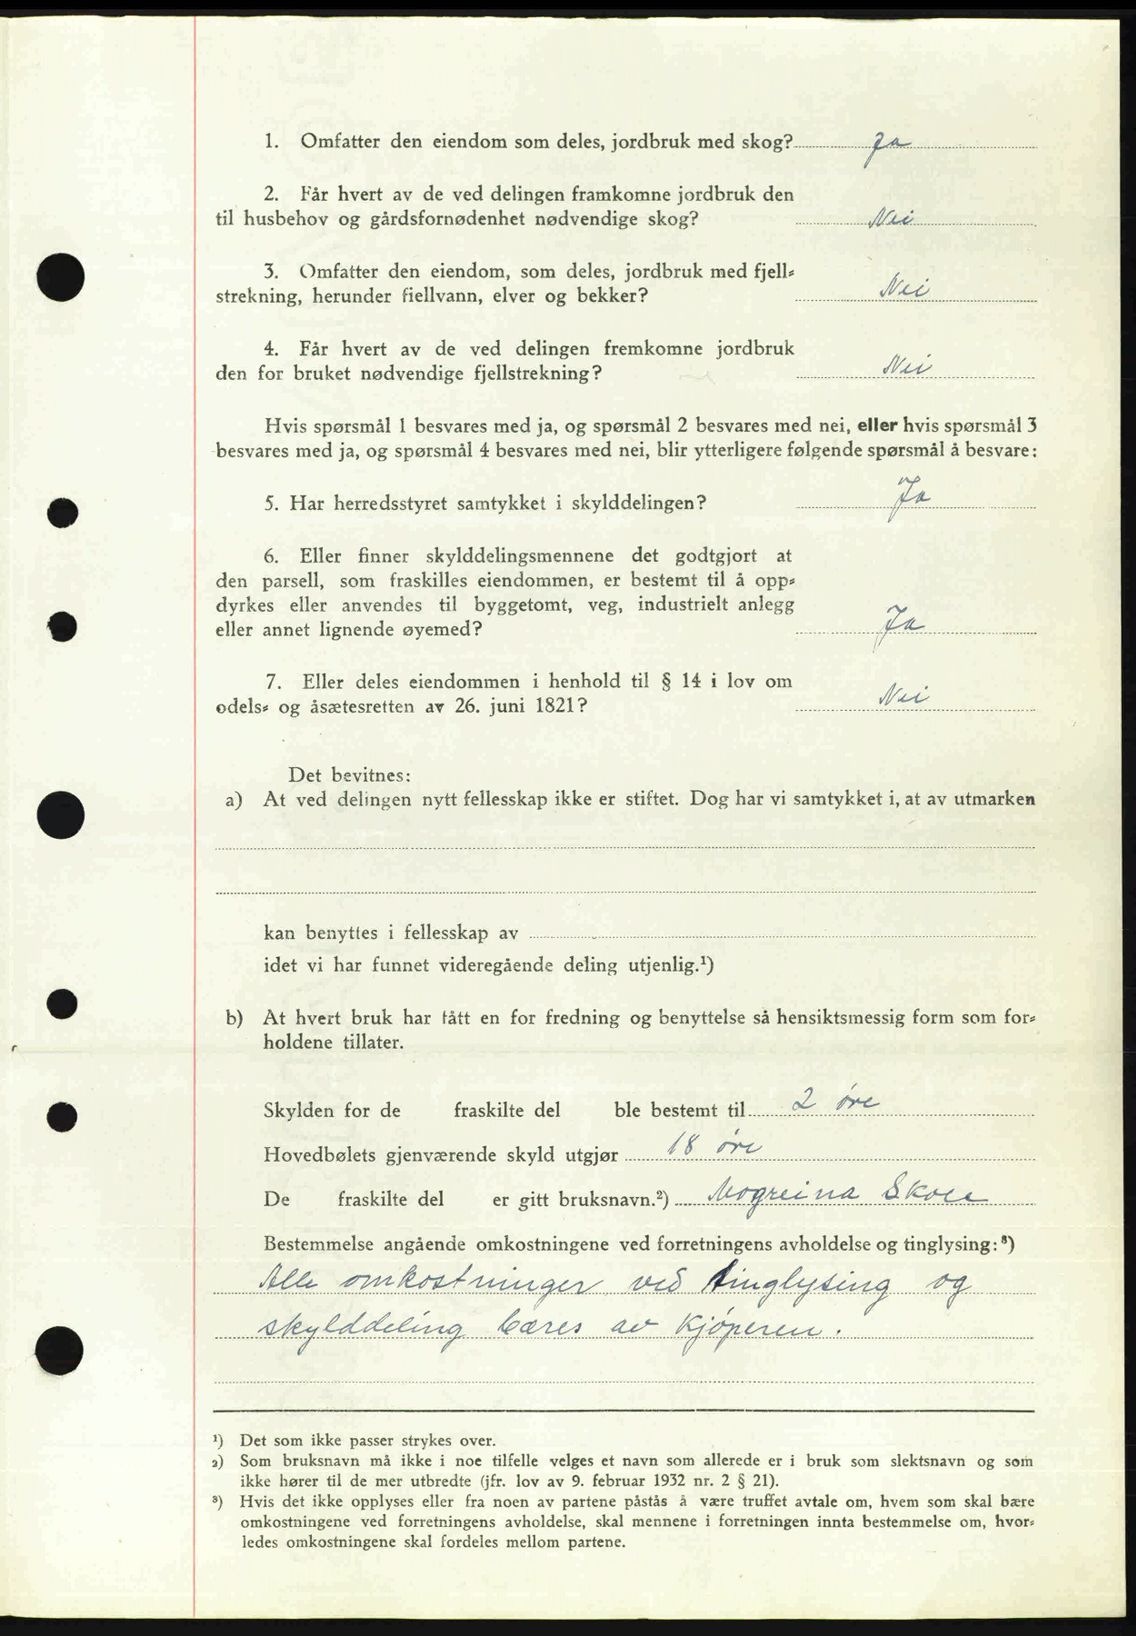 1. Omfatter den eiendom som deles, jordbruk med skog? Ja
2. Får hvert av de ved delingen framkomne jordbruk den
til husbehov og gårdsfornødenhet nødvendige skog? Nei
3. Omfatter den eiendom, som deles, jordbruk med fjell-
strekning, herunder fiellvann, elver og bekker? Nei
4. Får hvert av de ved delingen fremkomne jordbruk
den for bruket nødvendige fjellstrekning? Nei
Hvis spørsmål 1 besvares med ja, og spørsmål 2 besvares med nei, eller hvis spørsmål 3
besvares med ja, og spørsmål 4 besvares med nei, blir ytterligere følgende spørsmål å besvare:
5. Har herredsstyret samtykket i skylddelingen? Ja
6. Eller finner skylddelingsmennene det godtgjort at
den parsell, som fraskilles eiendommen, er bestemt til å opp-
dyrkes eller anvendes til byggetomt, veg, industrielt anlegg
eller annet lignende øyemed? Ja
7. Eller deles eiendommen i henhold til § 14 i lov om
odels- og åsætesretten av 26. juni 1821? Nei
Det bevitnes:
a) At ved delingen nytt fellesskap ikke er stiftet. Dog har vi samtykket i, at av utmarken
kan benyttes i fellesskap av
idet vi har funnet videregående deling utjenlig.¹)
b) At hvert bruk har fått en for fredning og benyttelse så hensiktsmessig form som for-
holdene tillater.
Skylden for de fraskilte del ble bestemt til 2 øre
Hovedbølets gjenværende skyld utgjør 18 øre
De fraskilte del er gitt bruksnavn.²) Mogreina Skole
Bestemmelse angående omkostningene ved forretningens avholdelse og tinglysing:³)
Alle omkostninger ved tinglysing og
skylddeling bæres av kjøperen.
¹) Det som ikke passer strykes over.
²) Som bruksnavn må ikke i noe tilfelle velges et navn som allerede er i bruk som slektsnavn og som
ikke hører til de mer utbredte (jfr. lov av 9. februar 1932 nr. 2 § 21).
³) Hvis det ikke opplyses eller fra noen av partene påstås å være truffet avtale om, hvem som skal bære
omkostningene ved forretningens avholdelse, skal mennene i forretningen innta bestemmelse om, hvor-
ledes omkostningene skal fordeles mellom partene.